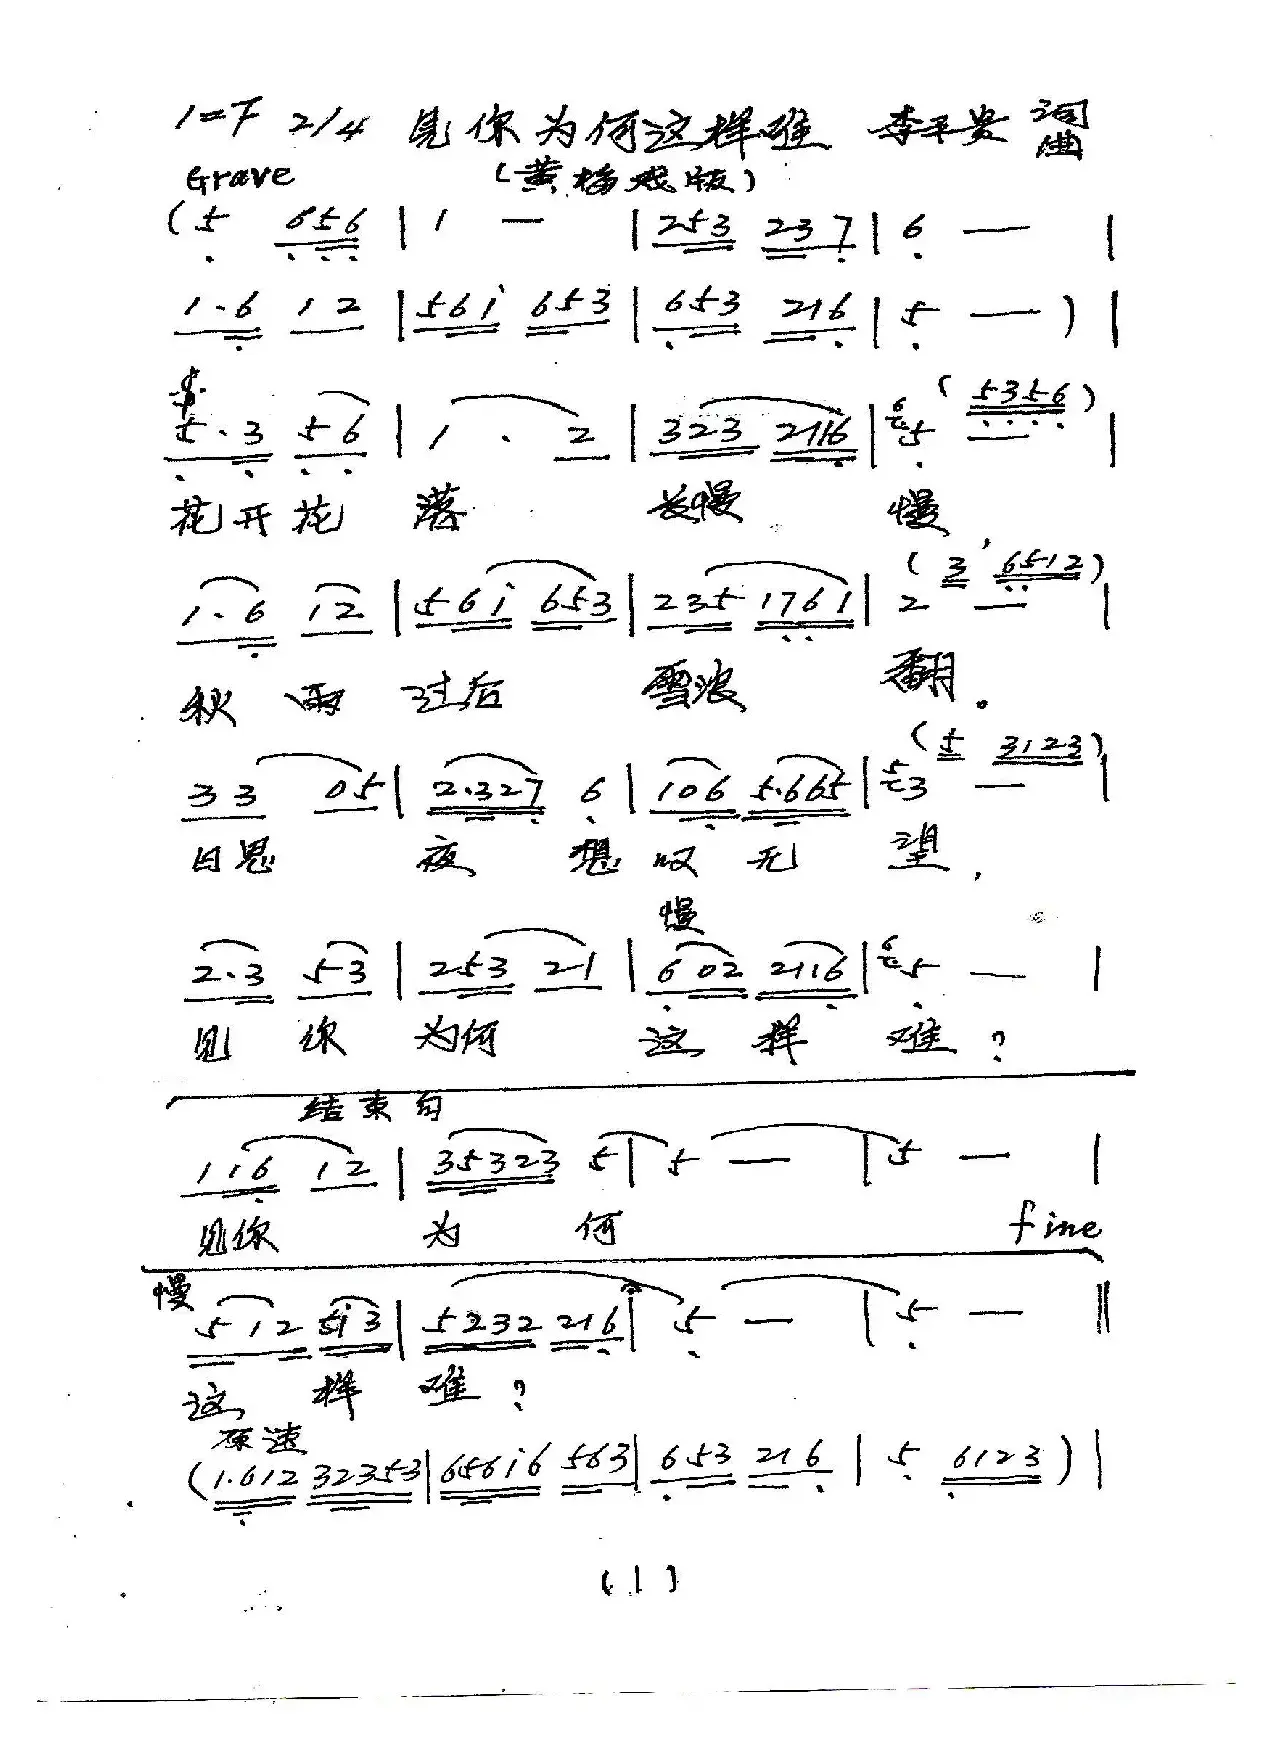 1=F 2/4 见你为何这样难 李平贵 词曲
Grave (黄梅戏版)
(5 656 | 1 — | 253 237 | 6 — |
1·6 12 | 561 653 | 653 216 | 5 — ) |
5·3 56 | 1 · 2 | 323 2116 | 6 5 — (5356) |
花开花 落 长慢 慢,
1·6 12 | 561 653 | 235 1761 | 2 — (3 6512) |
秋雨过后 雪浪 翻。
33 05 | 2·327 6 | 106 5·665 | 5 3 — (5 3123) |
日思 夜 想 叹无 望,
慢
2·3 53 | 253 21 | 602 2116 | 6 5 — |
见你 为何 这样 难?
结束句
116 12 | 35323 5 | 5 — | 5 — |
见你 为 何 fine
慢
512 513 | 5232 216 | 5 — | 5 — ‖
这样难?
原速
(1·612 32353 | 65616 563 | 653 216 | 5 6123 ) |
(1)